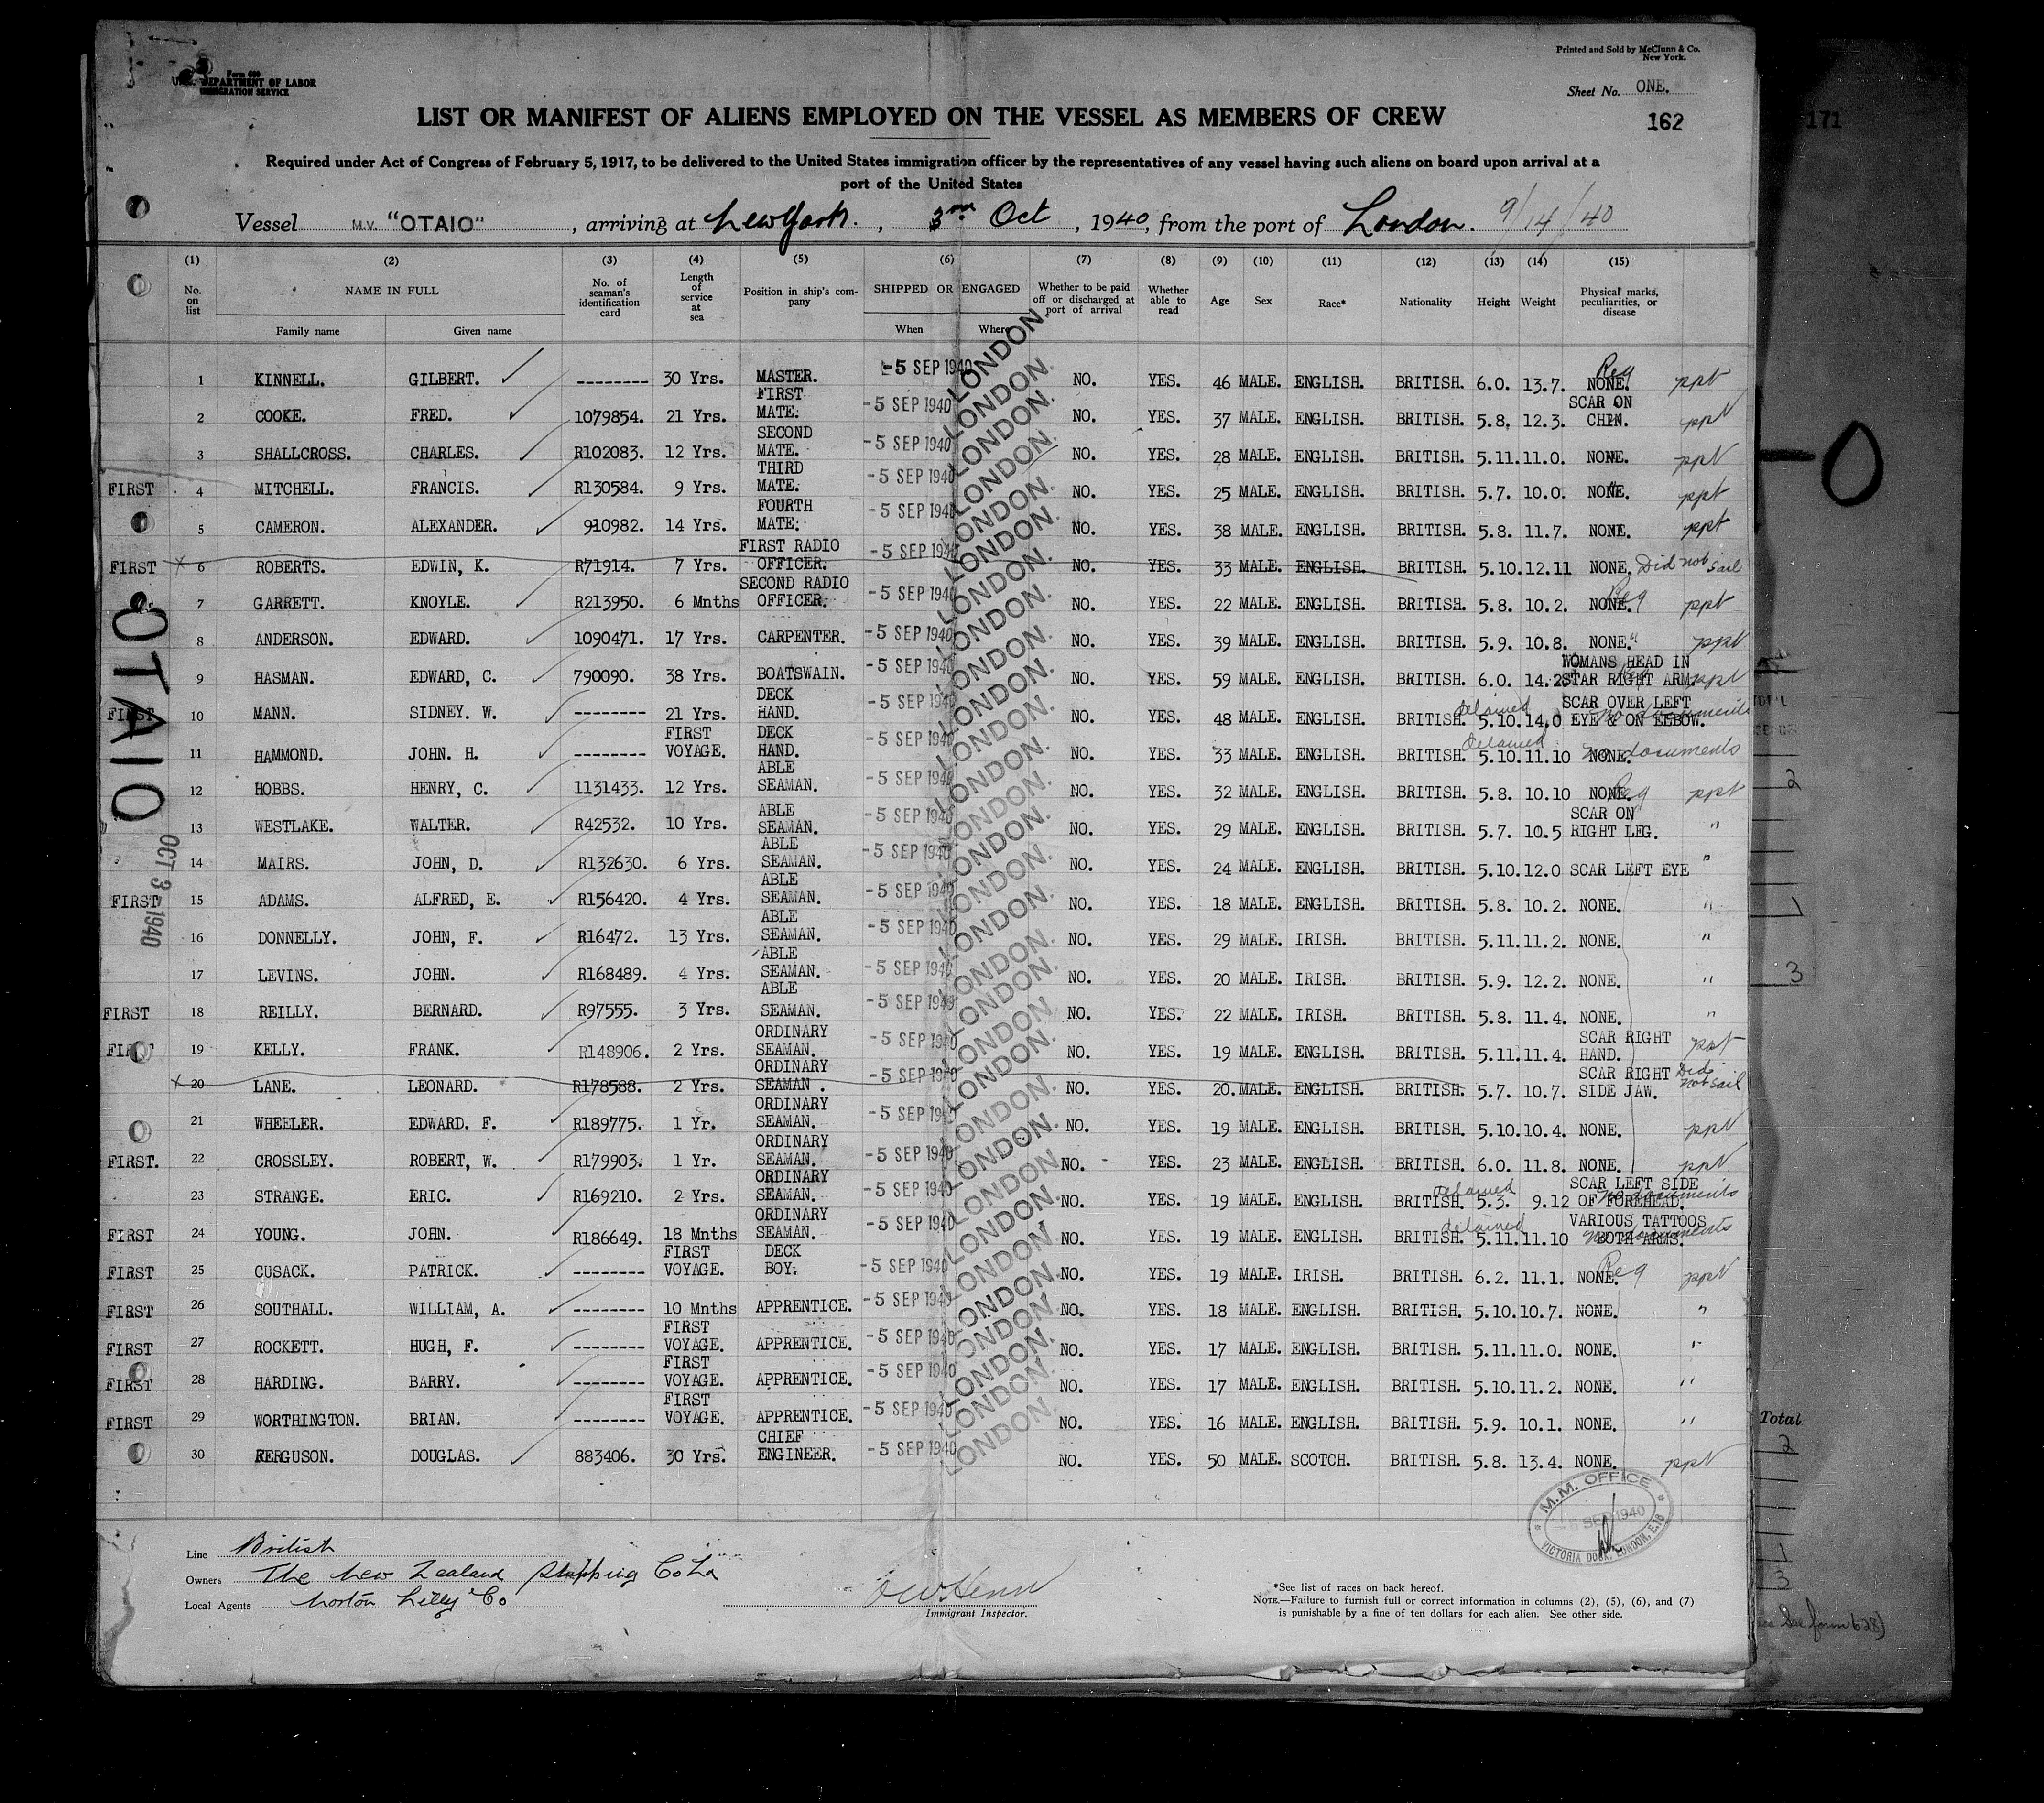 Printed and Sold by McClunn & Co.
New York.
Form 680
U.S. DEPARTMENT OF LABOR
IMMIGRATION SERVICE
Sheet No. ONE.
LIST OR MANIFEST OF ALIENS EMPLOYED ON THE VESSEL AS MEMBERS OF CREW
162
171
Required under Act of Congress of February 5, 1917, to be delivered to the United States immigration officer by the representatives of any vessel having such aliens on board upon arrival at a
port of the United States
Vessel M.V. "OTAIO", arriving at New York., 3rd Oct, 1940, from the port of London. 9/14/40
(1) (2) (3) (4) (5) (6) (7) (8) (9) (10) (11) (12) (13) (14) (15)
No. on list NAME IN FULL Family name Given name No. of seaman's identification card Length of service at sea Position in ship's company SHIPPED OR ENGAGED When Where Whether to be paid off or discharged at port of arrival Whether able to read Age Sex Race* Nationality Height Weight Physical marks, peculiarities, or disease
1 KINNELL. GILBERT. -------- 30 Yrs. MASTER. -5 SEP 1940 LONDON. NO. YES. 46 MALE. ENGLISH. BRITISH. 6.0. 13.7. NONE. Reg ppt
2 COOKE. FRED. 1079854. 21 Yrs. FIRST MATE. -5 SEP 1940 LONDON. NO. YES. 37 MALE. ENGLISH. BRITISH. 5.8. 12.3. SCAR ON CHIN. ppt
3 SHALLCROSS. CHARLES. R102083. 12 Yrs. SECOND MATE. -5 SEP 1940 LONDON. NO. YES. 28 MALE. ENGLISH. BRITISH. 5.11. 11.0. NONE. ppt
FIRST 4 MITCHELL. FRANCIS. R130584. 9 Yrs. THIRD MATE. -5 SEP 1940 LONDON. NO. YES. 25 MALE. ENGLISH. BRITISH. 5.7. 10.0. NONE. ppt
5 CAMERON. ALEXANDER. 910982. 14 Yrs. FOURTH MATE. -5 SEP 1940 LONDON. NO. YES. 38 MALE. ENGLISH. BRITISH. 5.8. 11.7. NONE. ppt
FIRST x 6 ROBERTS. EDWIN, K. R71914. 7 Yrs. FIRST RADIO OFFICER. -5 SEP 1940 LONDON. NO. YES. 33 MALE. ENGLISH. BRITISH. 5.10. 12.11 NONE. Did not sail
7 GARRETT. KNOYLE. R213950. 6 Mnths SECOND RADIO OFFICER. -5 SEP 1940 LONDON. NO. YES. 22 MALE. ENGLISH. BRITISH. 5.8. 10.2. NONE. Reg ppt
8 ANDERSON. EDWARD. 1090471. 17 Yrs. CARPENTER. -5 SEP 1940 LONDON. NO. YES. 39 MALE. ENGLISH. BRITISH. 5.9. 10.8. NONE. " ppt
9 HASMAN. EDWARD, C. 790090. 38 Yrs. BOATSWAIN. -5 SEP 1940 LONDON. NO. YES. 59 MALE. ENGLISH. BRITISH. 6.0. 14.2. WOMANS HEAD IN STAR RIGHT ARM. ppt
FIRST 10 MANN. SIDNEY. W. -------- 21 Yrs. DECK HAND. -5 SEP 1940 LONDON. NO. YES. 48 MALE. ENGLISH. BRITISH. detained 5.10. 14.0 SCAR OVER LEFT EYE & ON ELBOW. No documents
11 HAMMOND. JOHN. H. -------- FIRST VOYAGE. DECK HAND. -5 SEP 1940 LONDON. NO. YES. 33 MALE. ENGLISH. BRITISH. detained 5.10. 11.10 NONE. No documents
12 HOBBS. HENRY, C. 1131433. 12 Yrs. ABLE SEAMAN. -5 SEP 1940 LONDON. NO. YES. 32 MALE. ENGLISH. BRITISH. 5.8. 10.10 NONE. Reg ppt
13 WESTLAKE. WALTER. R42532. 10 Yrs. ABLE SEAMAN. -5 SEP 1940 LONDON. NO. YES. 29 MALE. ENGLISH. BRITISH. 5.7. 10.5 SCAR ON RIGHT LEG. "
14 MAIRS. JOHN, D. R132630. 6 Yrs. ABLE SEAMAN. -5 SEP 1940 LONDON. NO. YES. 24 MALE. ENGLISH. BRITISH. 5.10. 12.0 SCAR LEFT EYE "
FIRST 15 ADAMS. ALFRED, E. R156420. 4 Yrs. ABLE SEAMAN. -5 SEP 1940 LONDON. NO. YES. 18 MALE. ENGLISH. BRITISH. 5.8. 10.2. NONE. "
16 DONNELLY. JOHN, F. R16472. 13 Yrs. ABLE SEAMAN. -5 SEP 1940 LONDON. NO. YES. 29 MALE. IRISH. BRITISH. 5.11. 11.2. NONE. "
17 LEVINS. JOHN. R168489. 4 Yrs. ABLE SEAMAN. -5 SEP 1940 LONDON. NO. YES. 20 MALE. IRISH. BRITISH. 5.9. 12.2. NONE. "
FIRST 18 REILLY. BERNARD. R97555. 3 Yrs. ABLE SEAMAN. -5 SEP 1940 LONDON. NO. YES. 22 MALE. IRISH. BRITISH. 5.8. 11.4. NONE. "
FIRST 19 KELLY. FRANK. R148906. 2 Yrs. ORDINARY SEAMAN. -5 SEP 1940 LONDON. NO. YES. 19 MALE. ENGLISH. BRITISH. 5.11. 11.4. SCAR RIGHT HAND. ppt
x 20 LANE. LEONARD. R178588. 2 Yrs. ORDINARY SEAMAN. -5 SEP 1940 LONDON. NO. YES. 20. MALE. ENGLISH. BRITISH. 5.7. 10.7. SCAR RIGHT SIDE JAW. Did not sail
21 WHEELER. EDWARD. F. R189775. 1 Yr. ORDINARY SEAMAN. -5 SEP 1940 LONDON. NO. YES. 19 MALE. ENGLISH. BRITISH. 5.10. 10.4. NONE. ppt
FIRST. 22 CROSSLEY. ROBERT, W. R179903. 1 Yr. ORDINARY SEAMAN. -5 SEP 1940 LONDON. NO. YES. 23 MALE. ENGLISH. BRITISH. 6.0. 11.8. NONE. ppt
23 STRANGE. ERIC. R169210. 2 Yrs. ORDINARY SEAMAN. -5 SEP 1940 LONDON. NO. YES. 19 MALE. ENGLISH. BRITISH. detained 5.3. 9.12 SCAR LEFT SIDE OF FOREHEAD. No documents
FIRST 24 YOUNG. JOHN. R186649. 18 Mnths ORDINARY SEAMAN. -5 SEP 1940 LONDON. NO. YES. 19 MALE. ENGLISH. BRITISH. detained 5.11. 11.10 VARIOUS TATTOOS BOTH ARMS. No documents
FIRST 25 CUSACK. PATRICK. -------- FIRST VOYAGE. DECK BOY. -5 SEP 1940 LONDON. NO. YES. 19 MALE. IRISH. BRITISH. 6.2. 11.1. NONE. Reg ppt
FIRST 26 SOUTHALL. WILLIAM, A. -------- 10 Mnths APPRENTICE. -5 SEP 1940 LONDON. NO. YES. 18 MALE. ENGLISH. BRITISH. 5.10. 10.7. NONE. "
FIRST 27 ROCKETT. HUGH, F. -------- FIRST VOYAGE. APPRENTICE. -5 SEP 1940 LONDON. NO. YES. 17 MALE. ENGLISH. BRITISH. 5.11. 11.0. NONE. "
FIRST 28 HARDING. BARRY. -------- FIRST VOYAGE. APPRENTICE. -5 SEP 1940 LONDON. NO. YES. 17 MALE. ENGLISH. BRITISH. 5.10. 11.2. NONE. "
FIRST 29 WORTHINGTON. BRIAN. -------- FIRST VOYAGE. APPRENTICE. -5 SEP 1940 LONDON. NO. YES. 16 MALE. ENGLISH. BRITISH. 5.9. 10.1. NONE. "
30 FERGUSON. DOUGLAS. 883406. 30 Yrs. CHIEF ENGINEER. -5 SEP 1940 LONDON. NO. YES. 50 MALE. SCOTCH. BRITISH. 5.8. 13.4. NONE. ppt
OTAIO
OCT 3-1940
M.M. OFFICE
SEP 1940
VICTORIA DOCK, LONDON, E.16
Line British
Owners The New Zealand Shipping Co Ld
Local Agents Norton Lilly & Co
Immigrant Inspector.
*See list of races on back hereof.
NOTE.—Failure to furnish full or correct information in columns (2), (5), (6), and (7)
is punishable by a fine of ten dollars for each alien. See other side.
-0
2
1
3
Total
2
1
3
See form 628)